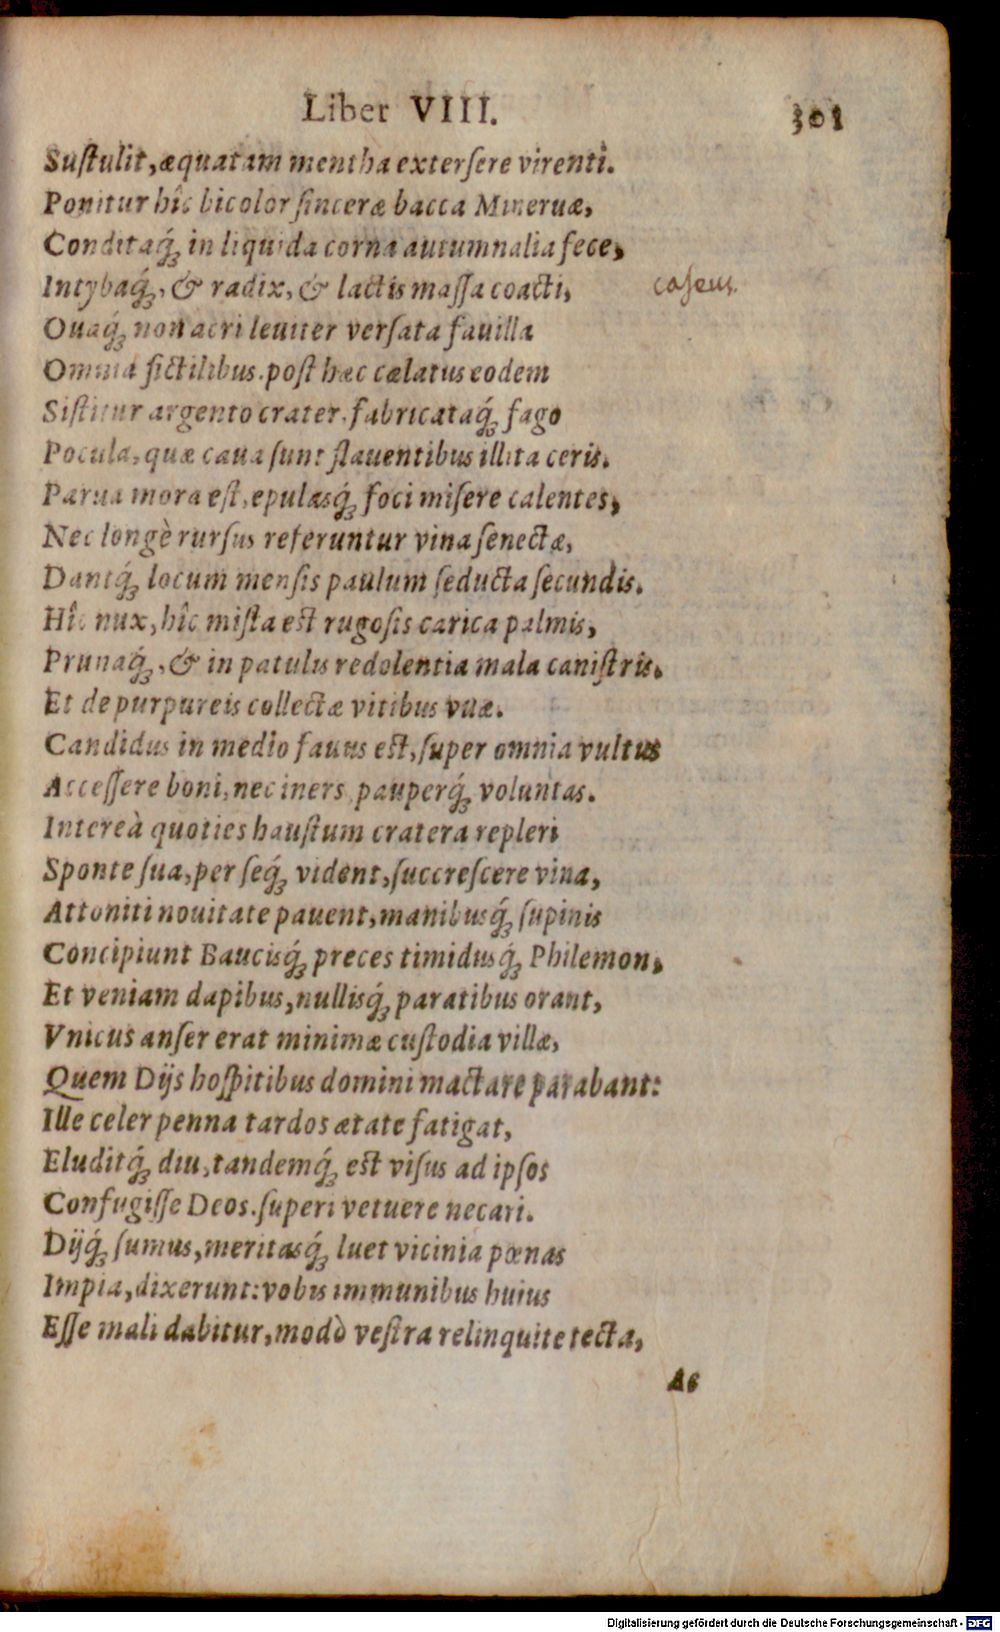 Liber VIII. 301
Suſtulit, æquatam mentha exterſere virenti.
Ponitur hîc bicolor ſinceræ bacca Mineruæ,
Conditaq́; in liquida corna autumnalia fece,
Intybaq́;, & radix, & lactis maſſa coacti, caſeus.
Ouaq́; non acri leuiter verſata fauilla
Omnia fictilibus. poſt hæc cælatus eodem
Siſtitur argento crater, fabricataq́; fago
Pocula, quæ caua ſunt flauentibus illita ceris.
Parua mora eſt, epulasq́; foci miſere calentes,
Nec longè rurſus referuntur vina ſenectæ,
Dantq́; locum menſis paulum ſeducta ſecundis.
Hîc nux, hîc miſta eſt rugoſis carica palmis,
Prunaq́;, & in patulis redolentia mala caniſtris,
Et de purpureis collectæ vitibus vuæ.
Candidus in medio fauus eſt, ſuper omnia vultus
Acceſſere boni, nec iners, pauperq́; voluntas.
Intereà quoties hauſtum cratera repleri
Sponte ſua, per ſeq́; vident, ſuccreſcere vina,
Attoniti nouitate pauent, manibusq́; ſupinis
Concipiunt Baucisq́; preces timidusq́; Philemon,
Et veniam dapibus, nullisq́; paratibus orant,
Vnicus anſer erat minimæ cuſtodia villæ,
Quem Dijs hoſpitibus domini mactare parabant:
Ille celer penna tardos ætate fatigat,
Eluditq́; diu, tandemq́; eſt viſus ad ipſos
Confugiſſe Deos. ſuperi vetuere necari.
Dijq́; ſumus, meritasq́; luet vicinia pœnas
Impia, dixerunt: vobis immunibus huius
Eſſe mali dabitur, modò veſtra relinquite tecta,
Ac
Digitalisierung gefördert durch die Deutsche Forschungsgemeinschaft - DFG